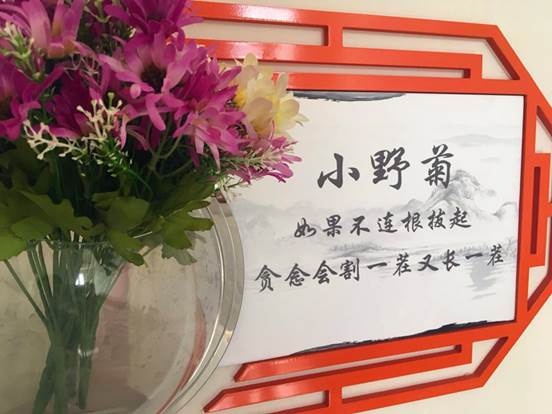 小野菊
如果不连根拔起
贪念会割一茬又长一茬